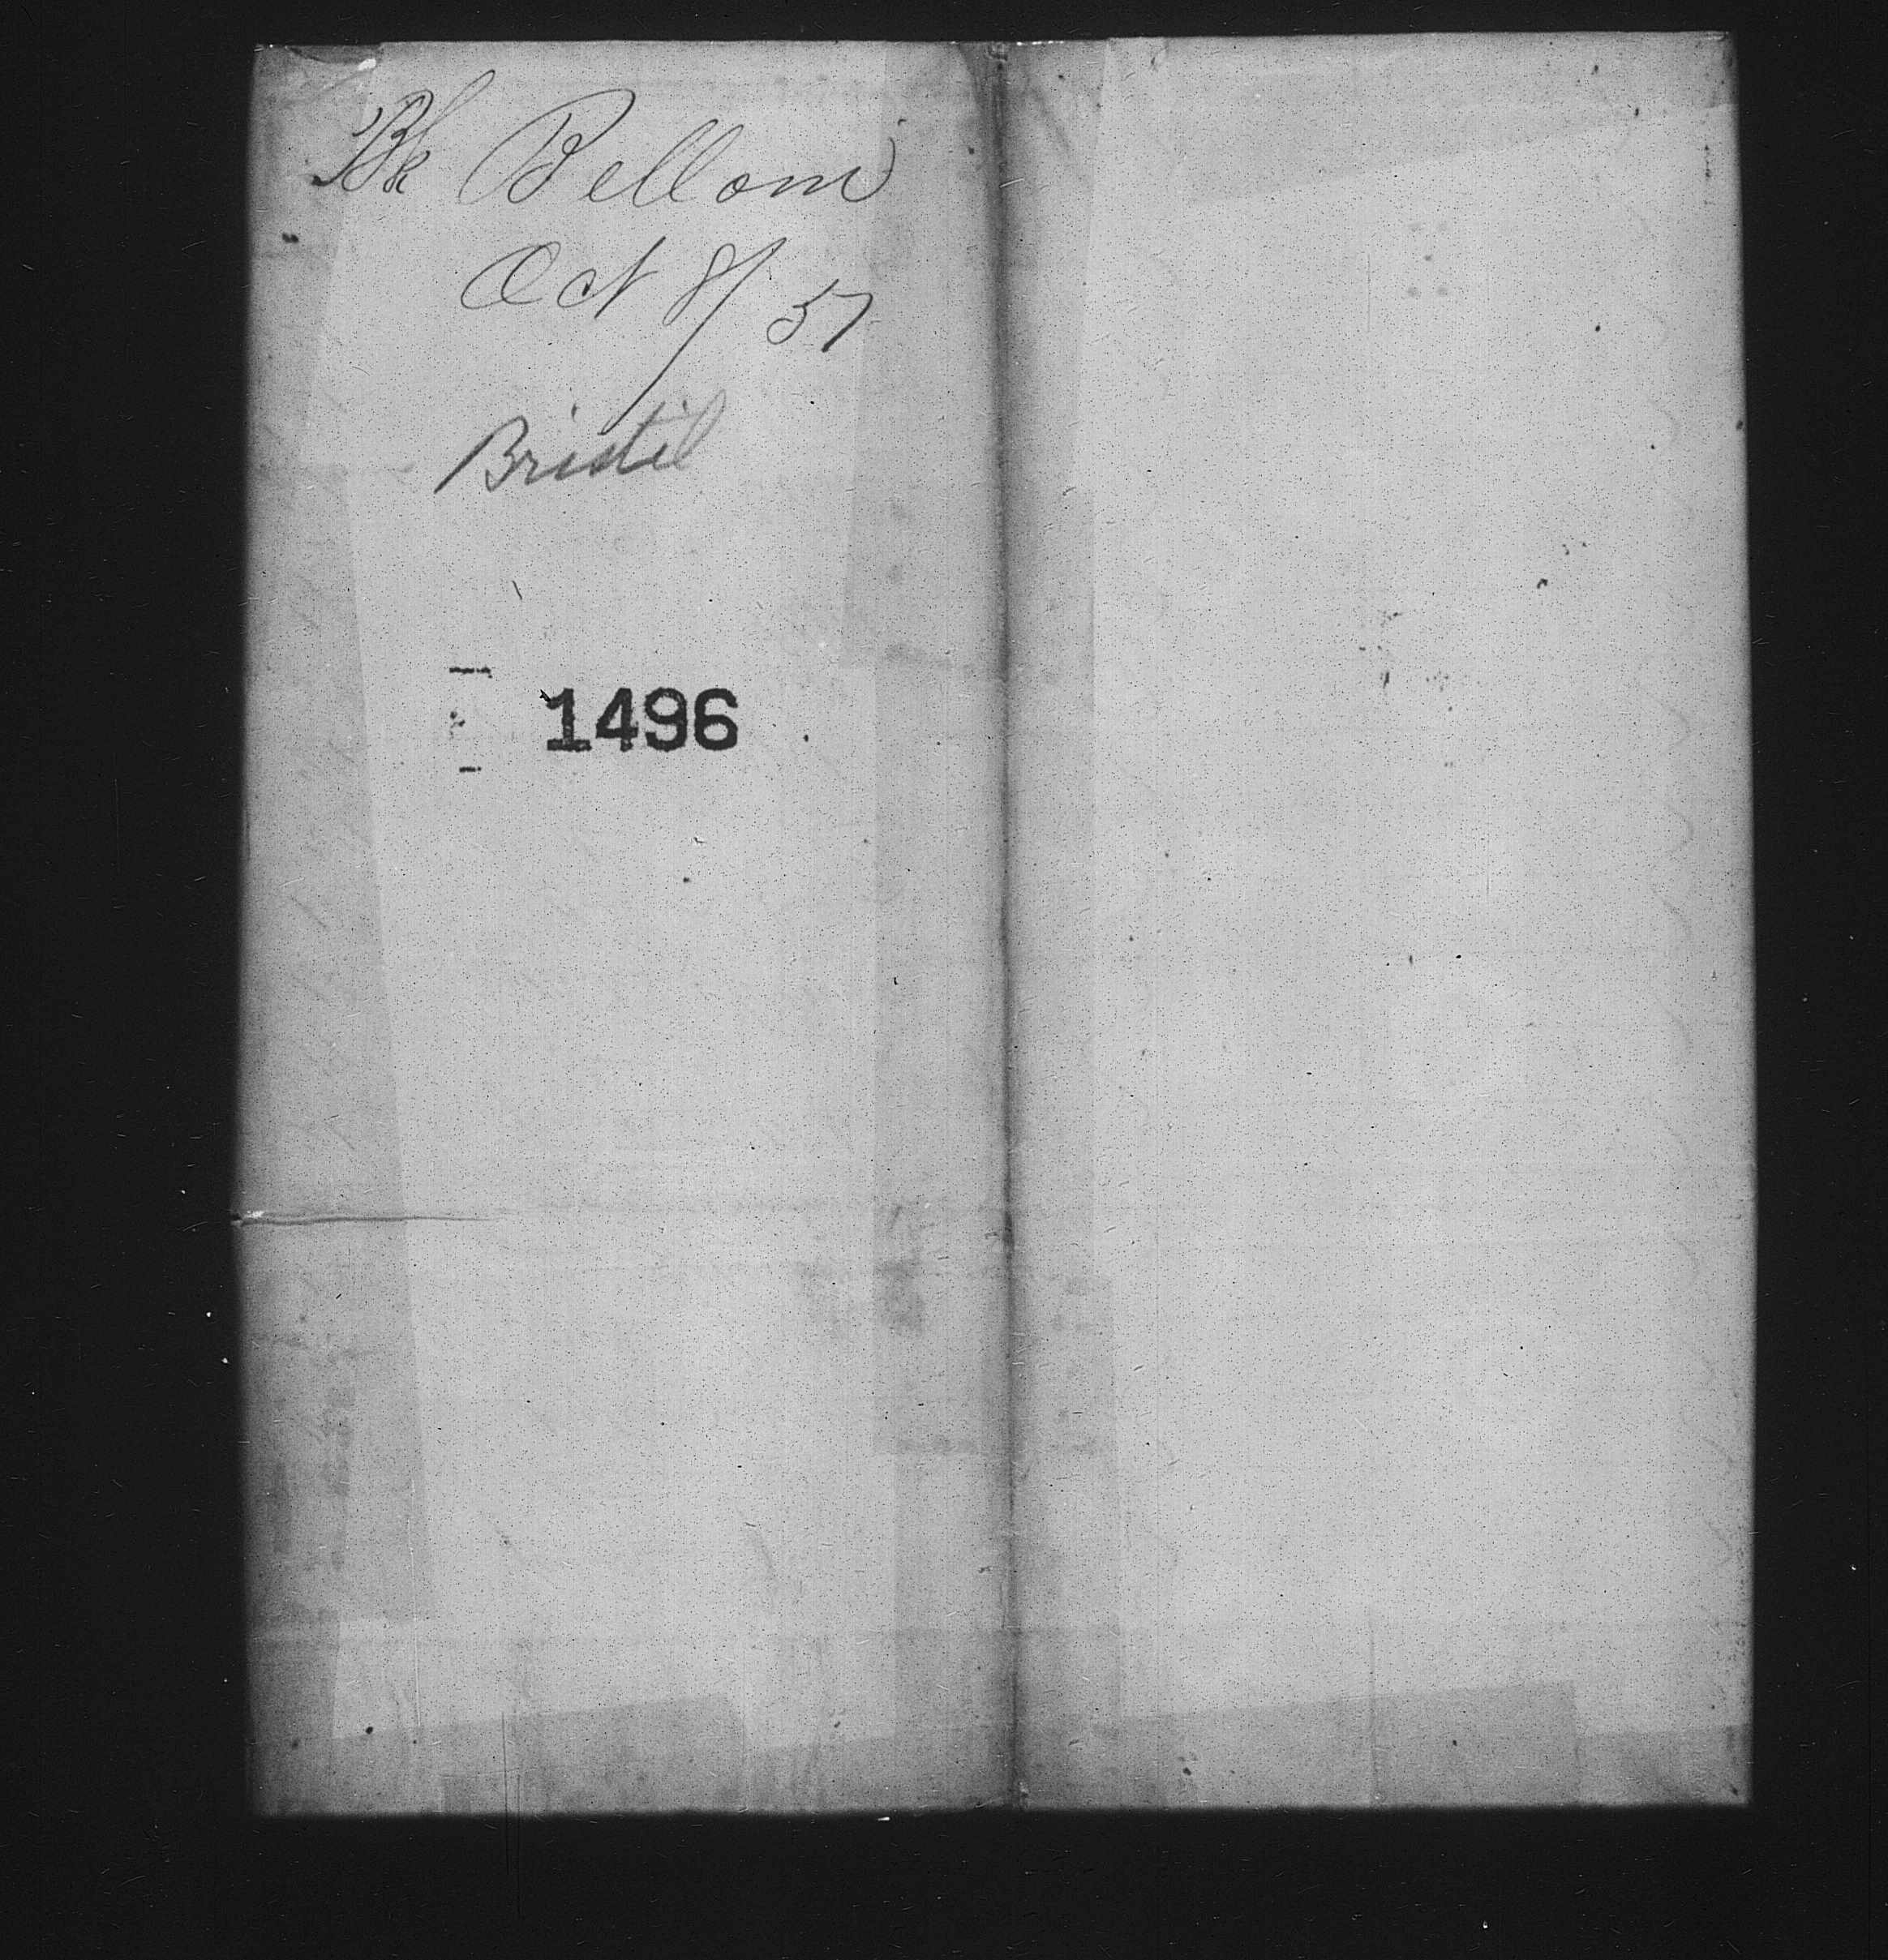 Bk Bellona
Oct 8/57
Bristil
1496